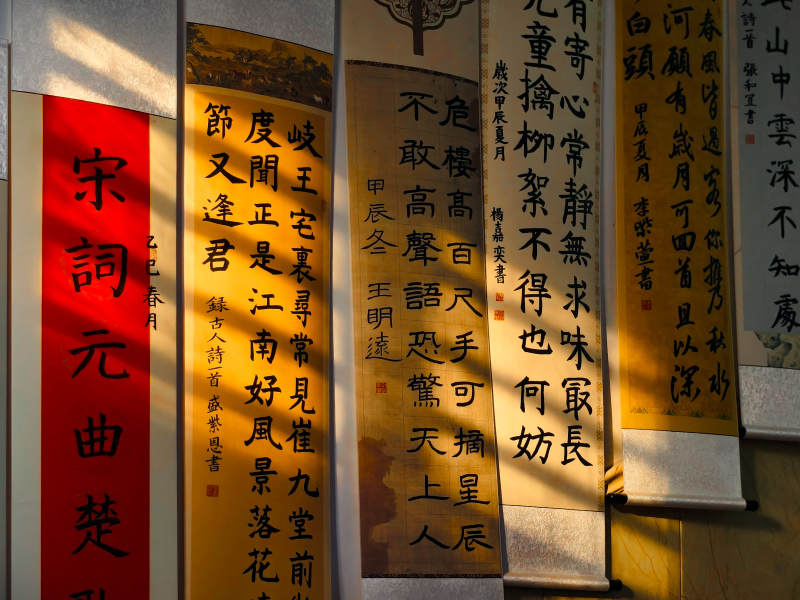 山中雲深不知處
人詩一首 張和宜書
春風皆過客你携秋水
河願有歲月可回首且以深
白頭
甲辰夏月 李紫萱書
有寄心常靜無求味最長
童擒柳絮不得也何妨
歲次甲辰夏月
楊嘉奕書
危樓高百尺手可摘星辰
不敢高聲語恐驚天上人
甲辰冬 王明遠
岐王宅裏尋常見崔九堂前
度聞正是江南好風景落花
節又逢君
録古人詩一首 盛紫恩書
乙巳春月
宋詞元曲楚